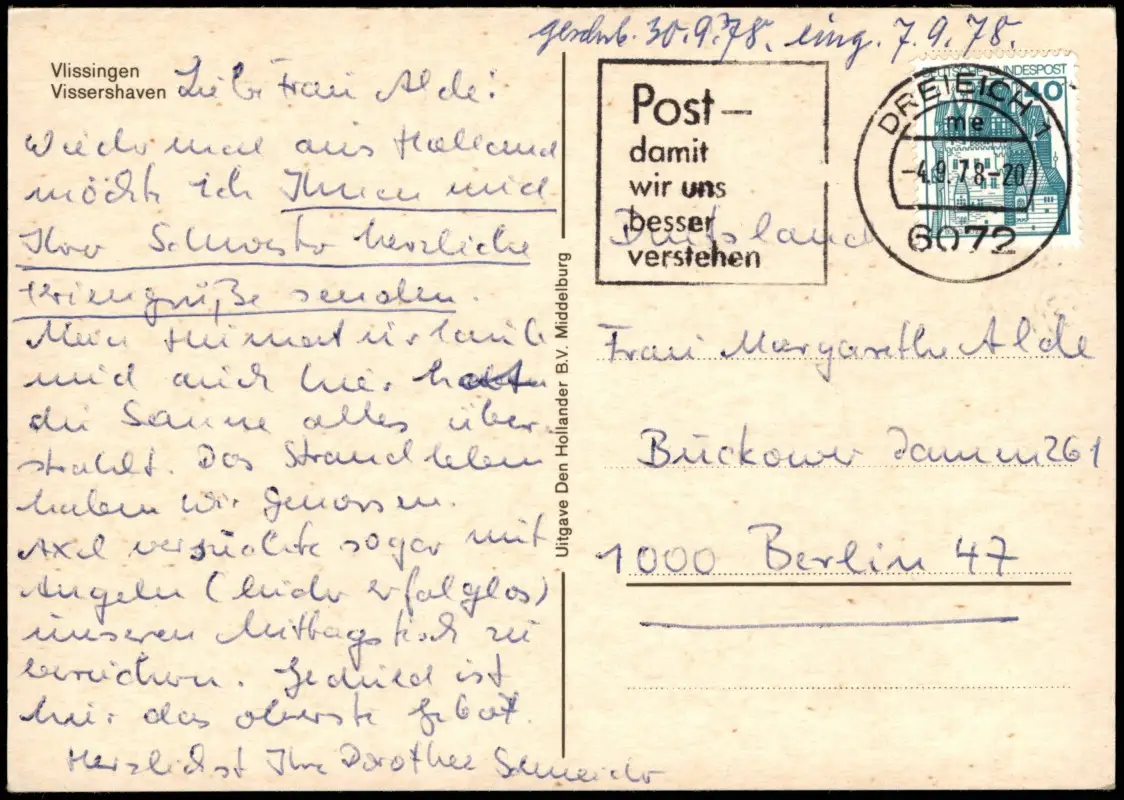 geschrb. 30.9.78. eing. 7.9.78.
Vlissingen
Vissershaven
Liebe Frau Alde!
Wieder mal aus Holland
möchte ich Ihnen und
Ihrer Schwester herzliche
Feriengrüße senden.
Mein Heimaturlaub
und auch hier hat
die Sonne alles über-
strahlt. Das Strandleben
haben wir genossen.
Axel versuchte sogar mit
Angeln (leider erfolglos)
unseren Mittagstisch zu
bereichern. Geduld ist
hier das oberste Gebot.
Herzlichst Ihre Dorothee Schneider
Uitgave Den Hollander B.V. Middelburg
Post –
damit
wir uns
besser
verstehen
DREIEICH 1
me
-4.9.78-20
6072
DEUTSCHE BUNDESPOST
40
Duitsland
Frau Margarethe Alde
Buckower Damm 261
1000 Berlin 47